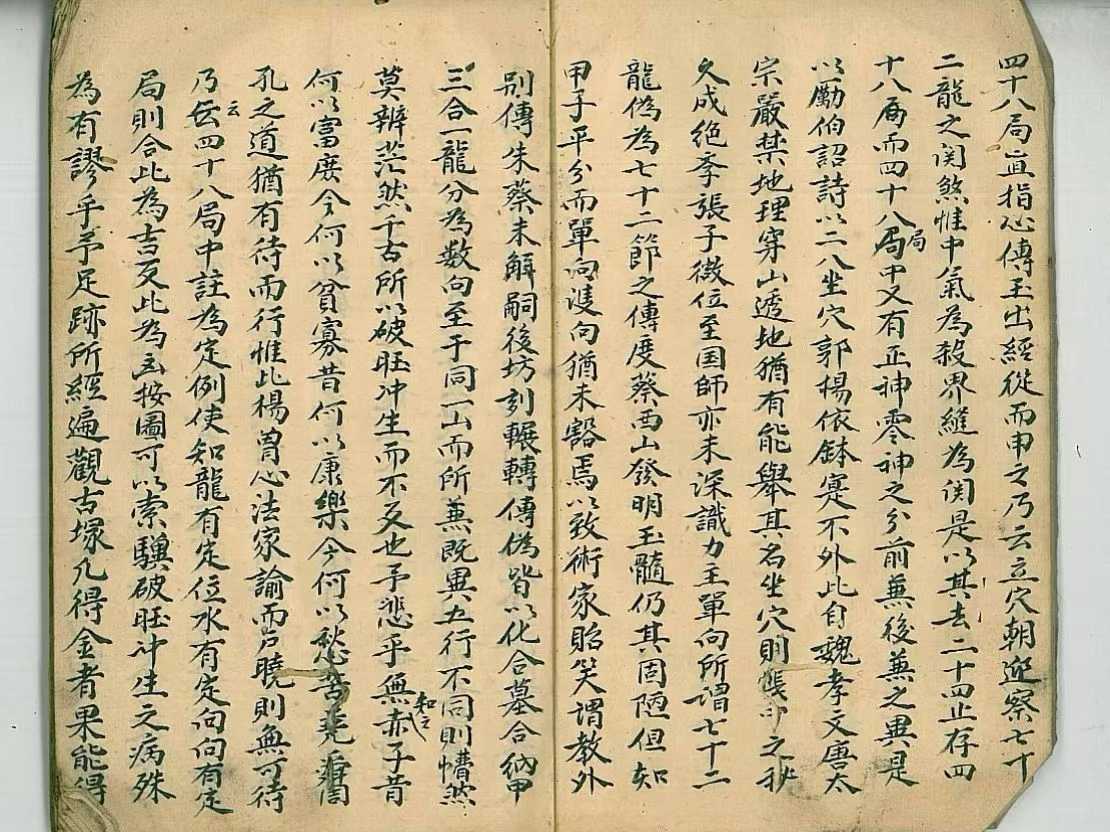 四十八局直指心傳玉出經從而申之乃云立穴朝迎察七十
二龍之関煞惟中氣為殺界縫為関是以其去二十四止存四
十八局而四十八局中又有正神零神之分前兼後兼之異是
以勵伯詔詩以二八坐穴郭楊依鉢寔不外此自魏孝文唐太
宗嚴禁地理穿山透地猶有能舉其名坐穴則之秘
久成絶李張子微位至国師亦未深識力主單向所謂七十二
龍偽為七十二節之傳度蔡西山發明玉髓仍其固陋但知
甲子平分而單向溇向猶未豁焉以致術家貽笑謂教外
别傳朱蔡未解嗣後坊刻輾轉傳偽皆以化合墓合納甲
三合一龍分為數向至于同一山而所兼既異五行不同則懵然
莫辨茫然千古所以破旺冲生而不反也予悲乎無知之赤子昔
何以富庶今何以貧寡昔何以康樂今何以愁苦尭
孔之道猶有待而行惟此楊曽心法家諭而户曉則無可待
乃云於四十八局中註為定例使知龍有定位水有定向向有定
局則合此為吉反此為玄按圖可以索驥破旺冲生之病殊
為有謬乎予足跡所經遍觀古塚凢得金者果能得